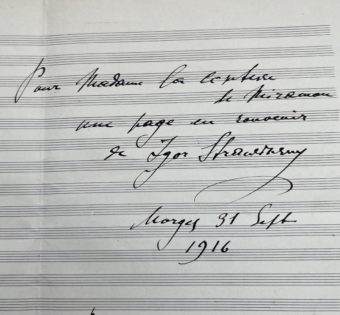 Pour Madame la Comtesse
de Miramon
une page en souvenir
de Igor Strawinsky
Morges 31 Sept
1916